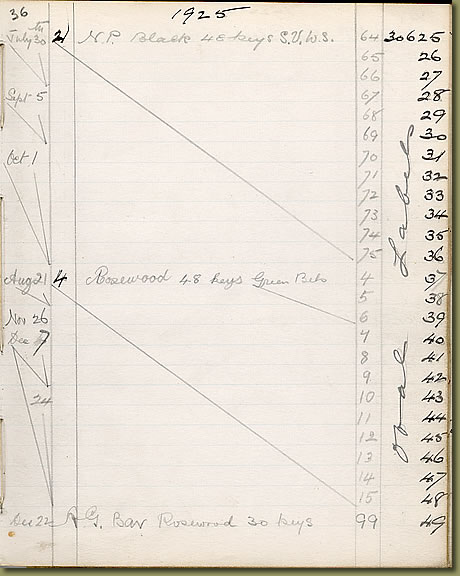 36 1925
July 30th 21 N.P. Black 48 keys S.V.W.S. 64 30625
65 26
66 27
Sept 5 67 28
68 29
69 30
Oct 1 70 31
71 32
72 33
73 34
74 35
75 36
Aug 21 4 Rosewood 48 keys Green Bels 4 37
5 38
Nov 26 6 39
Dec 7 7 40
8 41
9 42
24 10 43
11 44
12 45
13 46
14 47
15 48
Dec 22 A G. Bav Rosewood 30 keys 99 49
Oval Labels